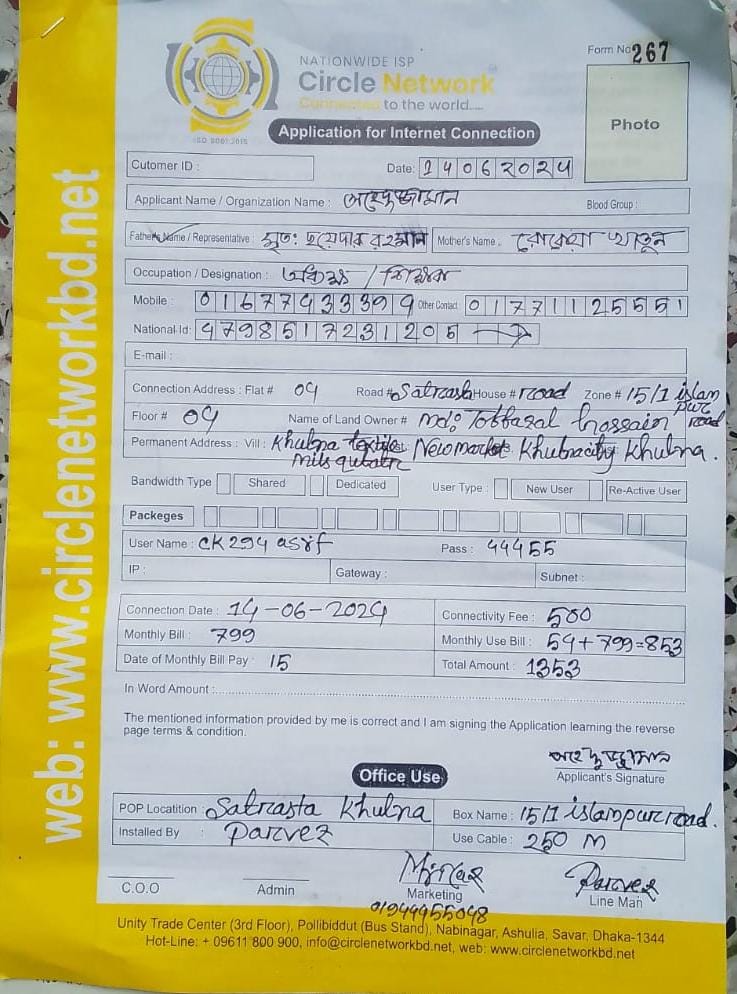 NATIONWIDE ISP
Circle Network
Connected to the world....
ISO 9001:2015
Form No 267
Photo
Application for Internet Connection
Cutomer ID :
Date: 14062024
Applicant Name / Organization Name :
Blood Group :
Father's Name / Representative : মৃত: রহমান Mother's Name . রোকেয়া খাতুন
Occupation / Designation : অধ্যক্ষ / শিক্ষক
Mobile : 01677433399 Other Contact 01771125551
National Id: 4798517231205
E-mail :
Connection Address : Flat # 04 Road # Satrasta House # road Zone # 15/1 islam pur road
Floor # 04 Name of Land Owner # md: Tobfazal hossain
Permanent Address : Vill : Khulna textiles mils Newmarket Khulnacity Khulna.
Bandwidth Type Shared Dedicated User Type : New User Re-Active User
Packeges
User Name : CK294 asif Pass : 44455
IP : Gateway : Subnet :
Connection Date : 14-06-2024 Connectivity Fee : 500
Monthly Bill : 799 Monthly Use Bill : 54+799=853
Date of Monthly Bill Pay : 15 Total Amount : 1353
In Word Amount :
The mentioned information provided by me is correct and I am signing the Application learning the reverse
page terms & condition.
Applicant's Signature
Office Use
POP Locatition : Satrasta Khulna Box Name : 15/1 islampur road.
Installed By : Parvez Use Cable : 250 M
C.O.O Admin Marketing Parvez Line Man
01944955048
Unity Trade Center (3rd Floor), Pollibiddut (Bus Stand), Nabinagar, Ashulia, Savar, Dhaka-1344
Hot-Line: + 09611 800 900, info@circlenetworkbd.net, web: www.circlenetworkbd.net
web: www.circlenetworkbd.net